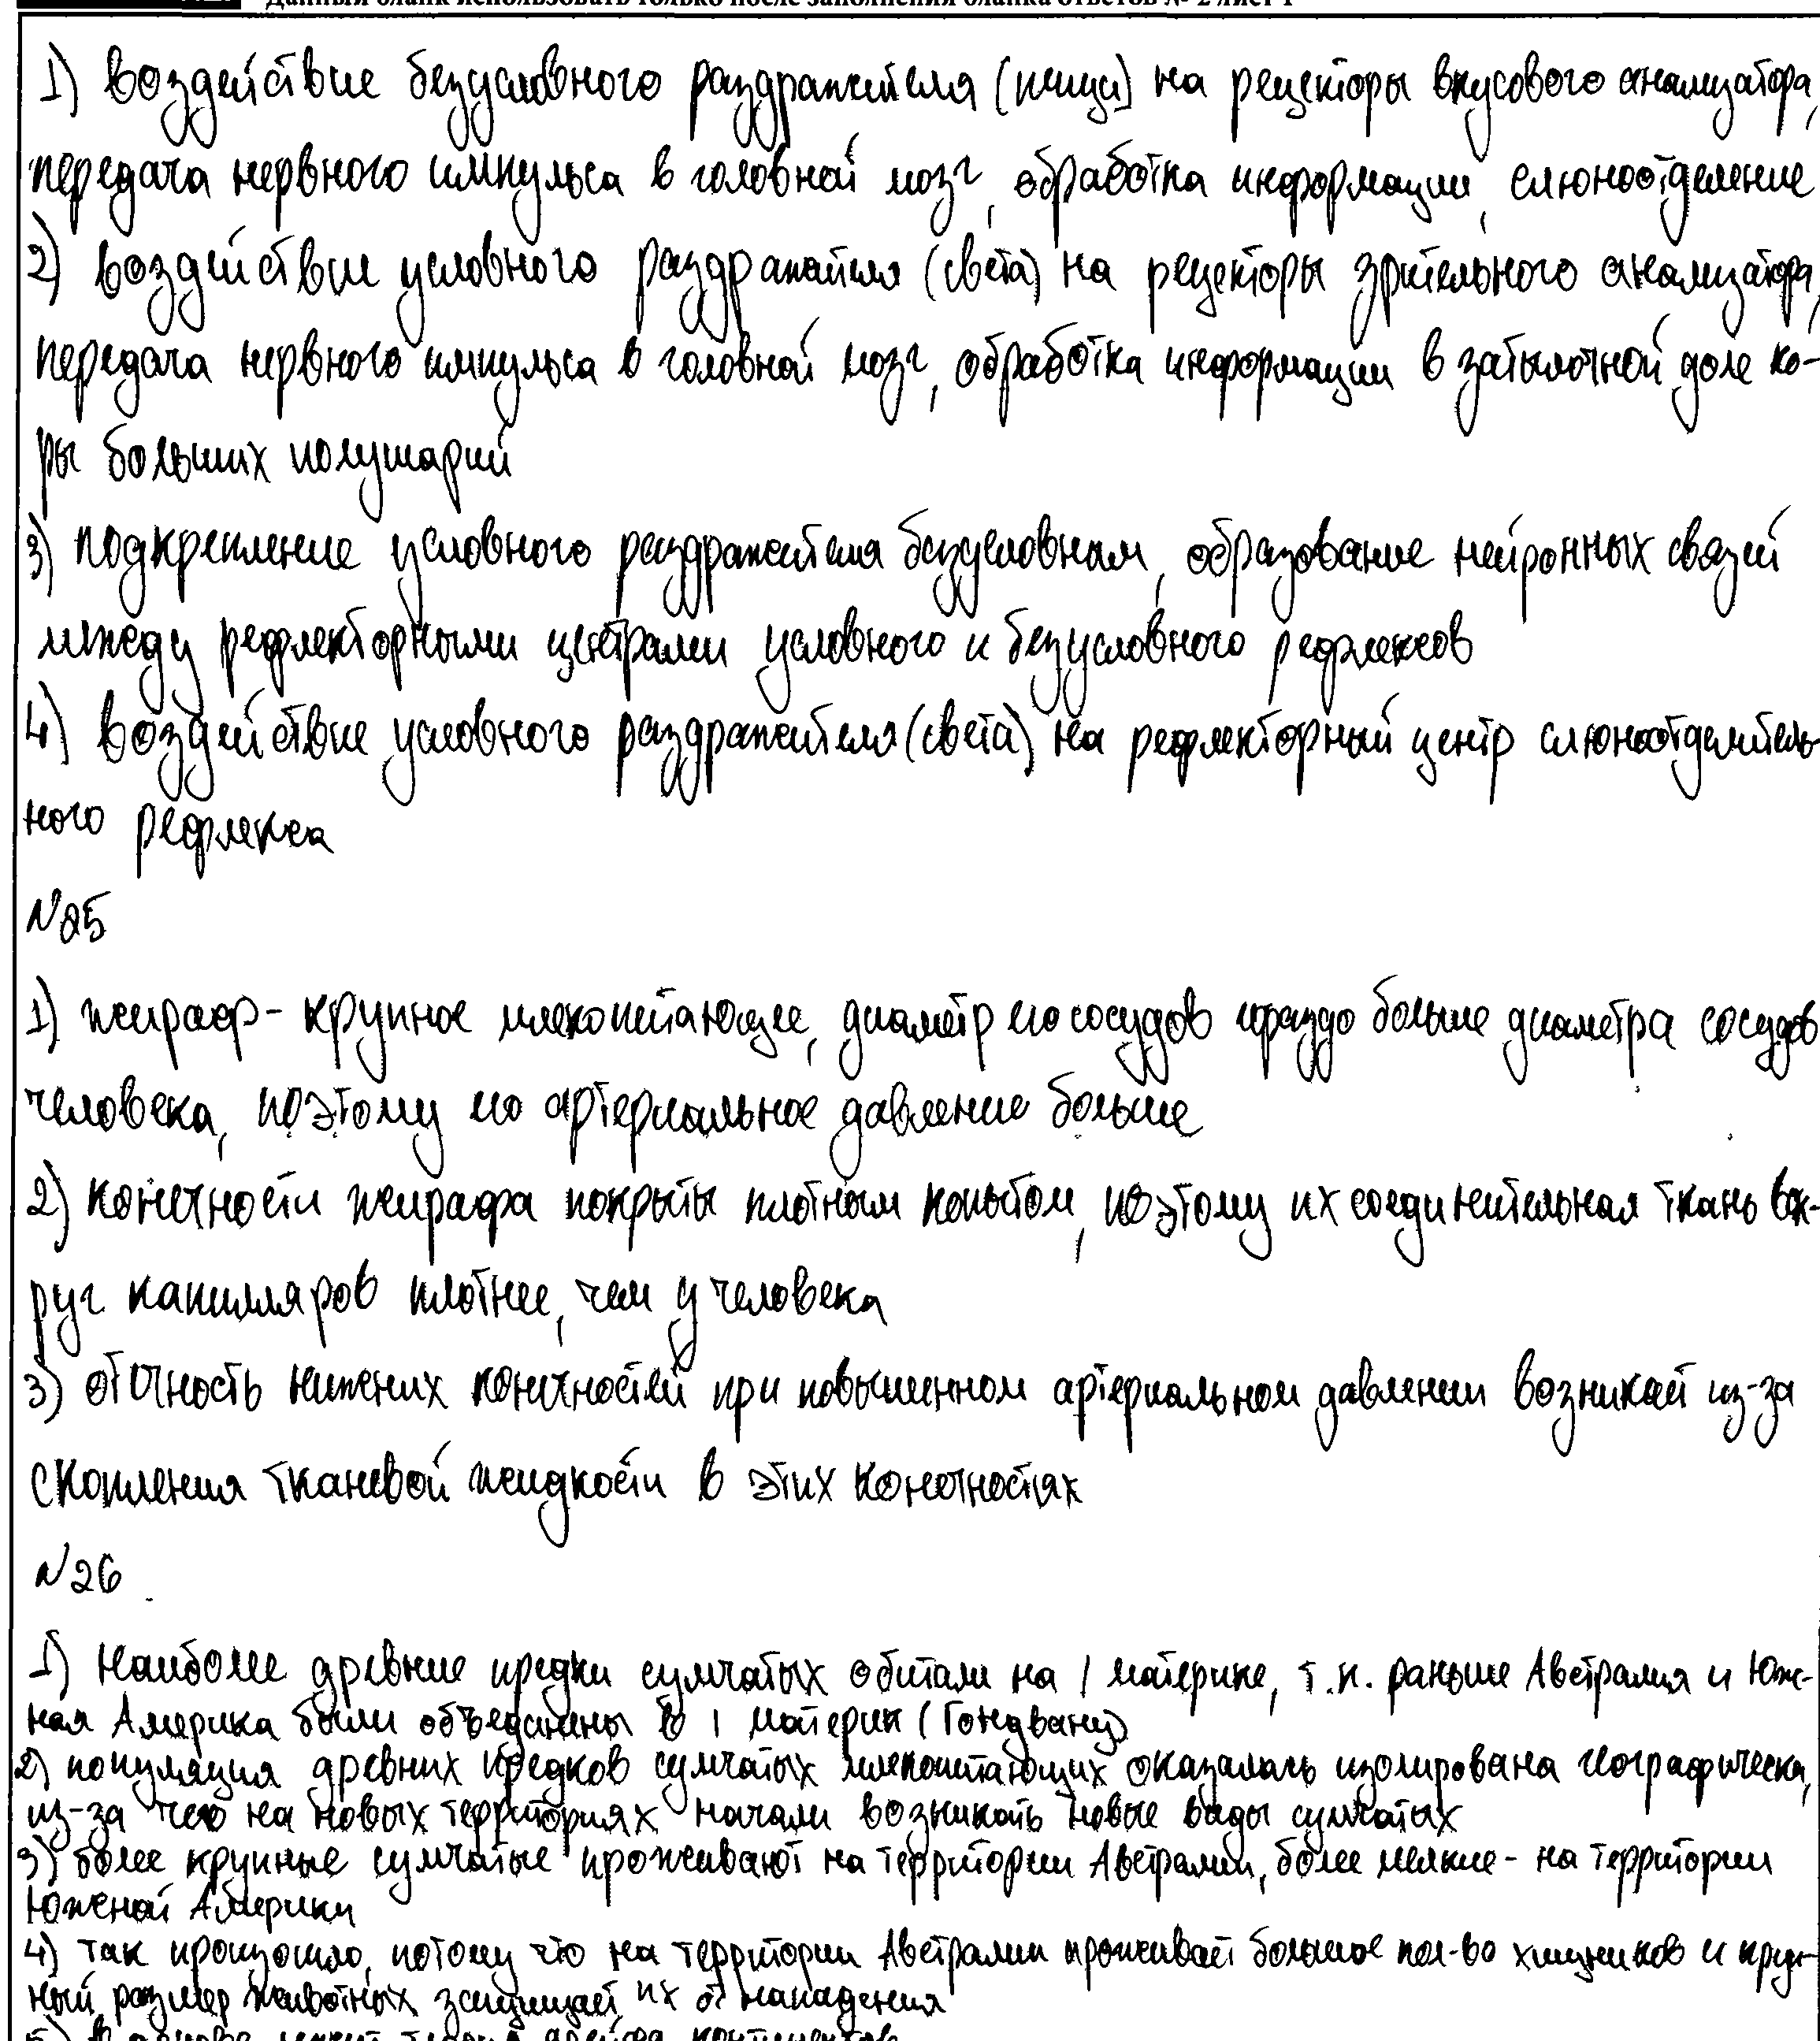 Данный бланк использовать только после заполнения бланка ответов № 2 лист 1
1) воздействие безусловного раздражителя (пищи) на рецепторы вкусового анализатора,
передача нервного импульса в головной мозг, обработка информации, слюноотделение
2) воздействие условного раздражителя (света) на рецепторы зрительного анализатора,
передача нервного импульса в головной мозг, обработка информации в затылочной доле ко-
ры больших полушарий
3) подкрепление условного раздражителя безусловным, образование нейронных связей
между рефлекторными центрами условного и безусловного рефлексов
4) воздействие условного раздражителя (света) на рефлекторный центр слюноотделитель-
ного рефлекса
№25
1) жираф - крупное млекопитающее, диаметр его сосудов гораздо больше диаметра сосудов
человека, поэтому его артериальное давление больше
2) конечности жирафа покрыты плотным копытом, поэтому их соединительная ткань вок-
руг капилляров плотнее, чем у человека
3) отечность нижних конечностей при повышенном артериальном давлении возникает из-за
скопления тканевой жидкости в этих конечностях
№26
1) Наиболее древние предки сумчатых обитали на 1 материке, т.к. раньше Австралия и Юж-
ная Америка были объединены в 1 материк (Гондвану)
2) популяция древних предков сумчатых млекопитающих оказалась изолирована географически,
из-за чего на новых территориях начали возникать новые виды сумчатых
3) более крупные сумчатые проживают на территории Австралии, более мелкие - на территории
Южной Америки
4) так произошло, потому что на территории Австралии проживает большое кол-во хищников и круп-
ный размер животных защищает их от нападения
5) в основе лежит теория дрейфа континентов